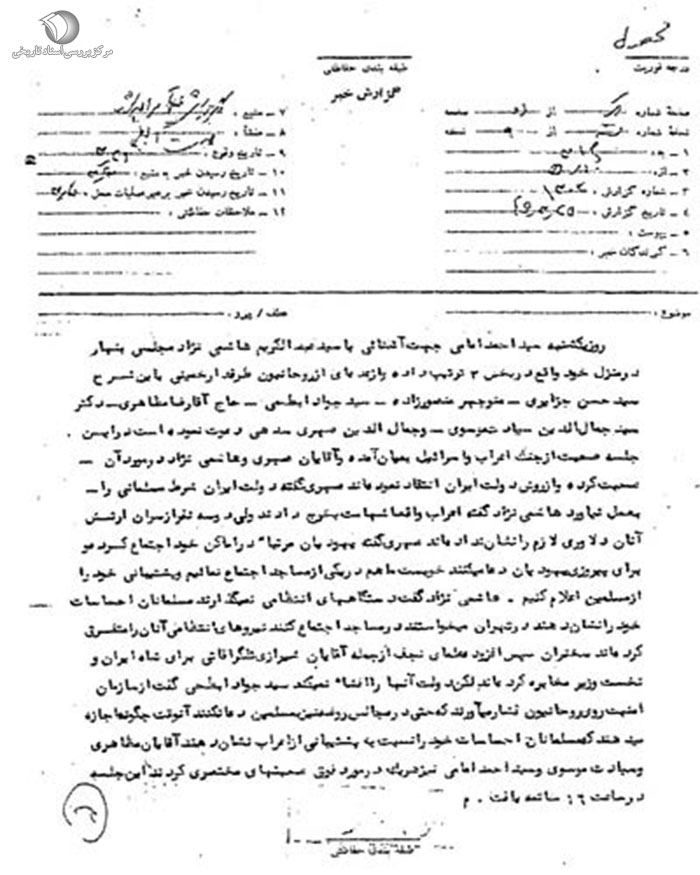 مرکز بررسی اسناد تاریخی
درجه فوریت
طبقه بندی حفاظتی
گزارش خبر
صفحه شماره از صفحه
نسخه شماره از نسخه
۱ ـ به :
۲ ـ از :
۳ ـ شماره گزارش :
۴ ـ تاریخ گزارش :
۵ ـ پیوست :
۶ ـ گیرندگان خبر :
۷ ـ منبع :
۸ ـ منشأ :
۹ ـ تاریخ وقوع :
۱۰ ـ تاریخ رسیدن خبر به منبع :
۱۱ ـ تاریخ رسیدن خبر برهبر عملیات محل :
۱۲ ـ ملاحظات حفاظتی :
موضوع :
عطف / پیرو :
روز یکشنبه سید احمد امامی جهت آشنائی با سید عبدالکریم هاشمی نژاد مجلسی بنهار
در منزل خود واقع در بخش ۳ ترتیب داده و از عده ای از روحانیون طرفدار خمینی باین شرح
سید حسن جزایری ـ منوچهر منصورزاده ـ سید جواد ابطحی ـ حاج آقا رضا مظاهری ـ دکتر
سید جمال الدین سیادت موسوی ـ و جمال الدین صهری سدهی دعوت نموده است در این
جلسه صحبت از جنگ اعراب و اسرائیل بمیان آمده و آقایان صهری و هاشمی نژاد در مورد آن ـ
صحبت کرده و از روش دولت ایران انتقاد نموده اند صهری گفته دولت ایران شرط مسلمانی را ـ
بعمل نیاورد هاشمی نژاد گفته اعراب واقعا شهامت بخرج دادند ولی دو سه نفر از سران ارتش
آنان دلاوری لازم را نشان نداده اند صهری گفته یهودیان مرتباً در اماکن خود اجتماع کرده و
برای پیروزی یهودیان دعا میکنند خوبست ما هم در یکی از مساجد اجتماع نمائیم و پشتیبانی خود را
از مسلمین اعلام کنیم . هاشمی نژاد گفت دستگاههای انتظامی نمیگذارند مسلمانان احساسات
خود را نشان دهند در تهران میخواستند در مساجد اجتماع کنند نیروهای انتظامی آنان را متفرق
کرده اند سخنران سپس افزود علمای نجف از جمله آقایان شیرازی تلگرافاتی برای شاه ایران و
نخست وزیر مخابره کرده اند لکن دولت آنها را افشاء نمیکند سید جواد ابطحی گفت از سازمان
امنیت روی روحانیون فشار میآورند که حتی در مجالس روضه نیز بمسلمین دعا نکنند آنوقت چگونه اجازه
میدهند که مسلمانان احساسات خود را نسبت به پشتیبانی از اعراب نشان دهند آقایان مظاهری
و سیادت موسوی و سید احمد امامی نیز هر یک در مورد فوق صحبتهای مختصری کردند این جلسه
در ساعت ۱۶ خاتمه یافت . م
طبقه بندی حفاظتی